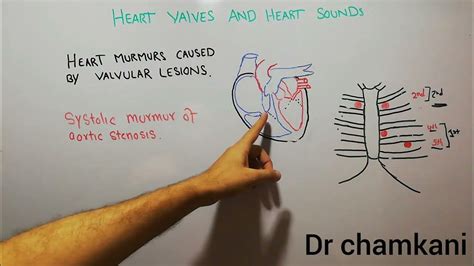 HEART VALVES AND HEART SOUNDS
HEART MURMURS CAUSED
BY VALVULAR LESIONS.
Systolic murmur of
aortic stenosis.
2nd 2nd
4th
5th 1st
Dr chamkani